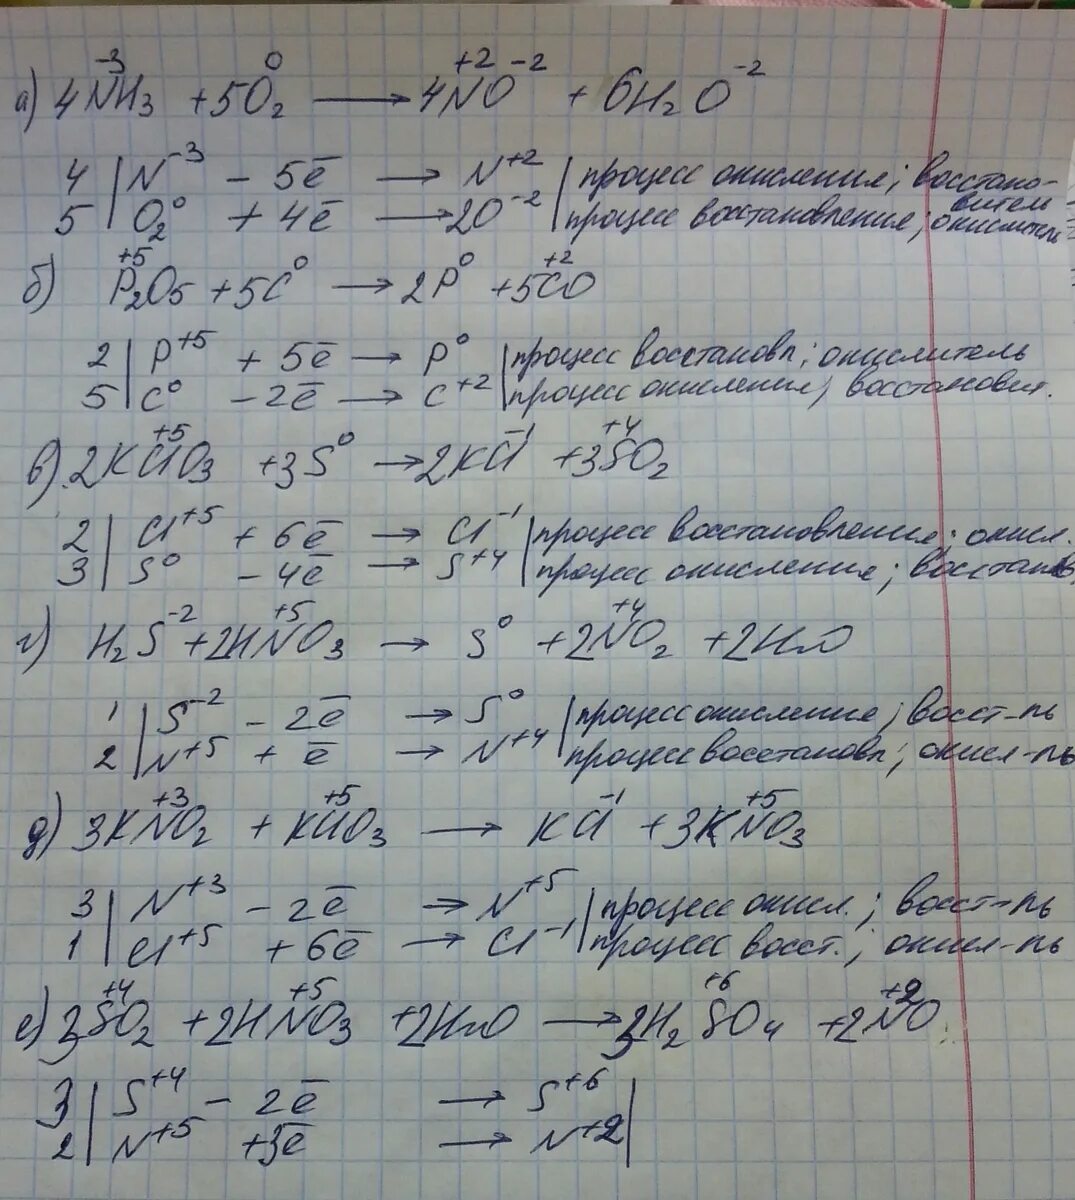 а) 4N⁻³H₃ + 5O₂⁰ → 4N⁺²O⁻² + 6H₂O⁻²
4 | N⁻³ - 5ē → N⁺² | процесс окисления; восстано-
вител
5 | O₂⁰ + 4ē → 2O⁻² | процесс восстановления; окислитель
б) P₂⁺⁵O₅ + 5C⁰ → 2P⁰ + 5C⁺²O
2 | P⁺⁵ + 5ē → P⁰ | процесс восстановл; окислитель
5 | C⁰ - 2ē → C⁺² | процесс окисления; восстановит.
в) 2KCl⁺⁵O₃ + 3S⁰ → 2KCl⁻¹ + 3S⁺⁴O₂
2 | Cl⁺⁵ + 6ē → Cl⁻¹ | процесс восстановления; окисл.
3 | S⁰ - 4ē → S⁺⁴ | процесс окисления; восстанов
г) H₂S⁻² + 2HN⁺⁵O₃ → S⁰ + 2N⁺⁴O₂ + 2H₂O
1 | S⁻² - 2ē → S⁰ | процесс окисление; восст-ль
2 | N⁺⁵ + ē → N⁺⁴ | процесс восстановл; окисл-ль
д) 3KN⁺³O₂ + KCl⁺⁵O₃ → KCl⁻¹ + 3KN⁺⁵O₃
3 | N⁺³ - 2ē → N⁺⁵ | процесс окисл.; восст-ль
1 | Cl⁺⁵ + 6ē → Cl⁻¹ | процесс восст.; окисл-ль
е) 3S⁺⁴O₂ + 2HN⁺⁵O₃ + 2H₂O → 3H₂S⁺⁶O₄ + 2N⁺²O
3 | S⁺⁴ - 2ē → S⁺⁶ |
2 | N⁺⁵ + 3ē → N⁺² |